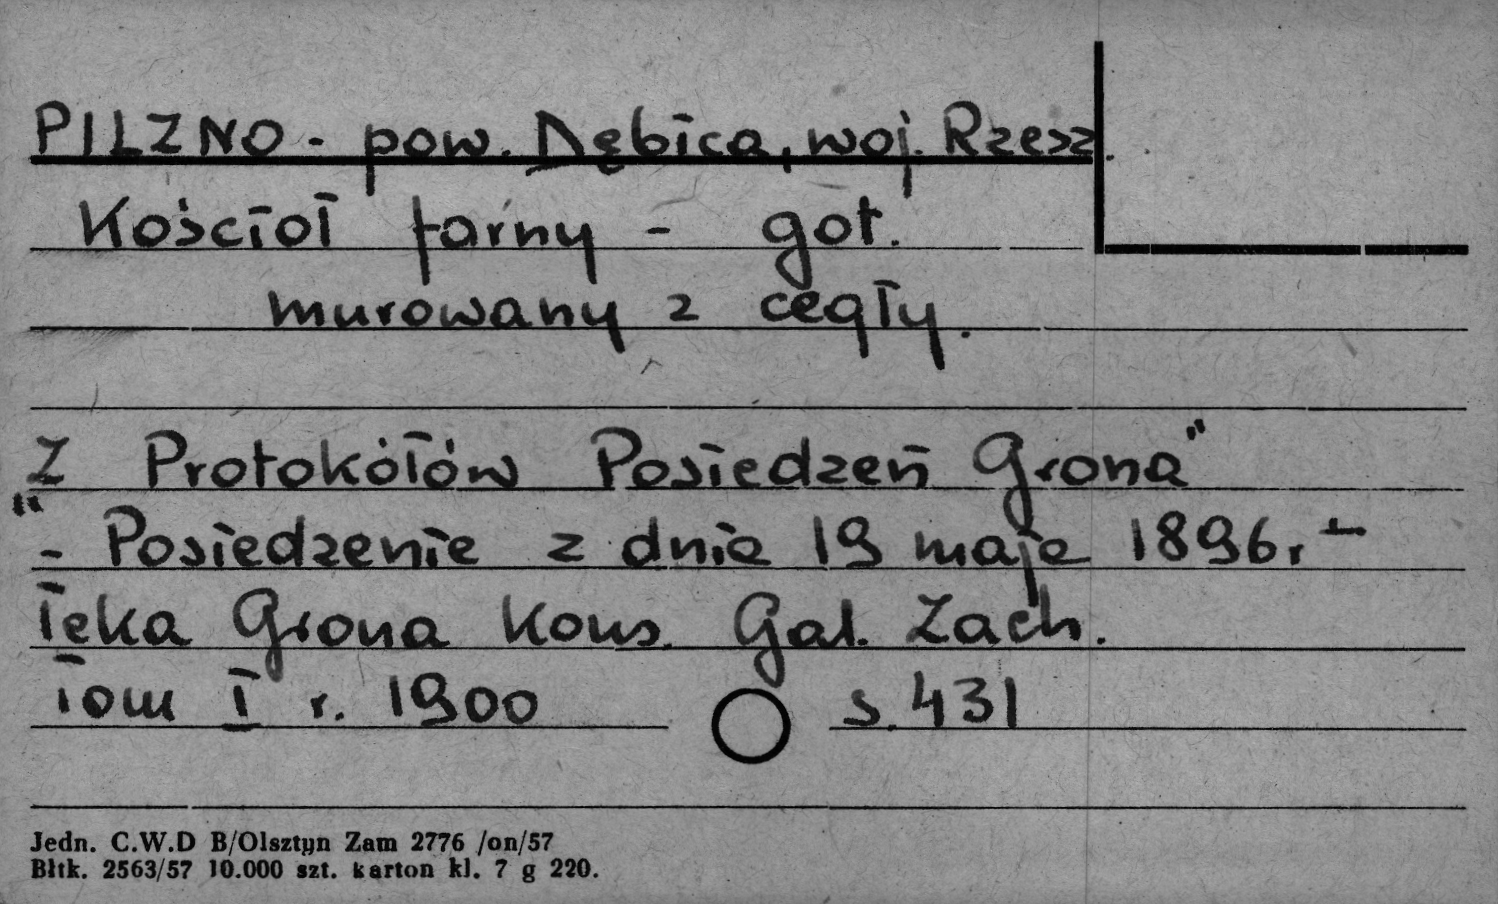 PILZNO - pow. Dębica, woj. Rzesz.
Kościół farny - got.
murowany z cegły.
Z Protokółów Posiedzeń Grona"
"- Posiedzenie z dnia 19 maja 1896r. -
Teka Grona Kons. Gal. Zach.
Tom I r. 1900 s. 431
Jedn. C.W.D B/Olsztyn Zam 2776 /on/57
Bltk. 2563/57 10.000 szt. karton kl. 7 g 220.